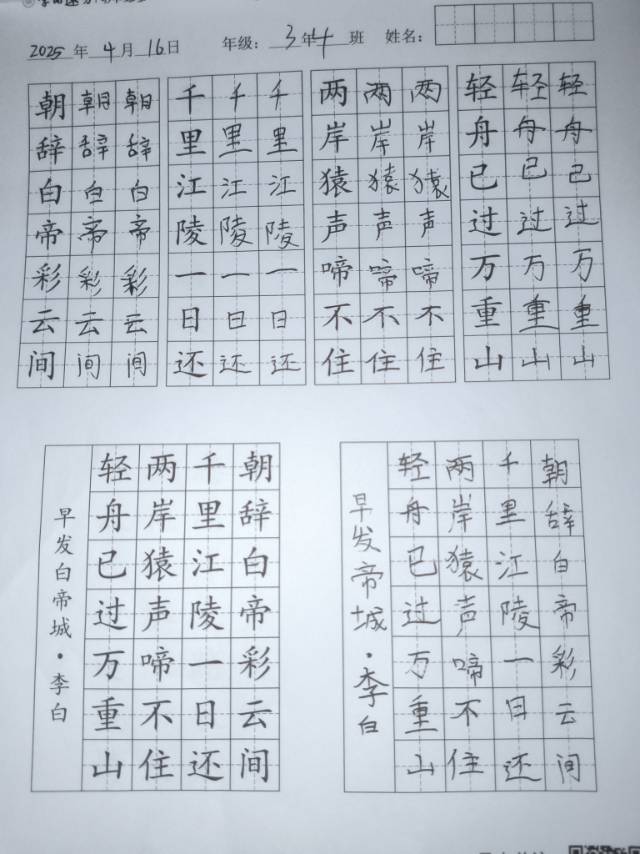 2025年 4月16日 年级: 3年4班 姓名:
朝辞白帝彩云间
朝辞白帝彩云间
朝辞白帝彩云间
千里江陵一日还
千里江陵一日还
千里江陵一日还
两岸猿声啼不住
两岸猿声啼不住
两岸猿声啼不住
轻舟已过万重山
轻舟已过万重山
轻舟已过万重山
朝辞白帝彩云间
千里江陵一日还
两岸猿声啼不住
轻舟已过万重山
早发白帝城·李白
朝辞白帝彩云间
千里江陵一日还
两岸猿声啼不住
轻舟已过万重山
早发帝城·李白